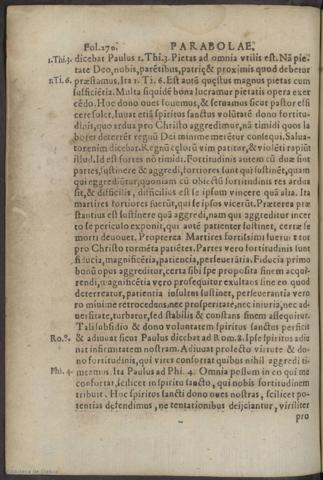 Fol.270. PARABOLAE.
1.Thi.3. dicebat Paulus 1.Thi.3. Pietas ad omnia vtilis est. Nã pie-
tate Deo, nobis, parẽtibus, patrię & proximis quod debetur
1.Ti.6. præstamus. Ita 1. Ti. 6. Est autẽ quęstus magnus pietas cum
sufficiẽtia. Multa siquidẽ bona lucramur pietatis opera exer
cẽdo. Hoc dono oues fouemus, & seruamus sicut pastor essi
cere solet. Iuuat etiã spiritus sanctus volũtatẽ dono fortitu-
dinis, quo ardua pro Christo aggredimur, nã timidi quos la
bores deterrẽt regnũ Dei minime merẽtur consequi. Salua-
torenim dicebat. Regnũ cęlorũ vim patitur, & violẽti rapiũt
illud. Id est fortes nõ timidi. Fortitudinis autem cũ duæ sint
partes, sustinere & aggredi, fortiores sunt qui sustinẽt, quam
qui egrediũtur, quoniam cũ obiectũ fortitudinis res ardua
sit, & difficilis, difficilius est se ipsum vincere quã alia. Ita
martires fortiores fuerũt, qui se ipsos vicerũt. Præterea præ
stantius est sustinere quã aggredi, nam qui aggreditur incer
to se periculo exponit, qui autẽ patienter sustinet, certæ se
morti deuouet. Propterea Martires fortissimi fuerũt tot
pro Christo tormẽta patiẽtes. Partes vero fortitudinis sunt
fiducia, magnificẽtia, patiencia, perseuerãtia. Fiducia primo
bonũ opus aggreditur, certa sibi spe proposita finem acqui-
rendi, magnificẽtia vero prosequitur exultans sine eo quod
deterreatur, patientia insultus sustinet, perseuerantia vero
ro minime retrocedens, nec prosperitate, nec iniuria, nec ad-
uersitate, turbatur, sed stabilis & constans finem assequitur.
Tali subsidio & dono voluntatem spiritus sanctus perficit
Ro.8. & adiuuat sicut Paulus dicebat ad Rom.8. Ipse spiritus adiu
uat infirmitatem nostram. Adiuuat profecto virtute & do-
no fortitudinis, qui vires confortat quibus nihil aggredi ti-
Phi.4. meamus. Ita Paulus ad Phi. 4. Omnia possum in eo qui me
confortat, scilicet in spiritu sancto, qui nobis fortitudinem
tribuit. Hoc spiritus sancti dono oues nostras, scilicet po-
tentias defendimus, ne tentationibus deijciantur, viriliter
pro